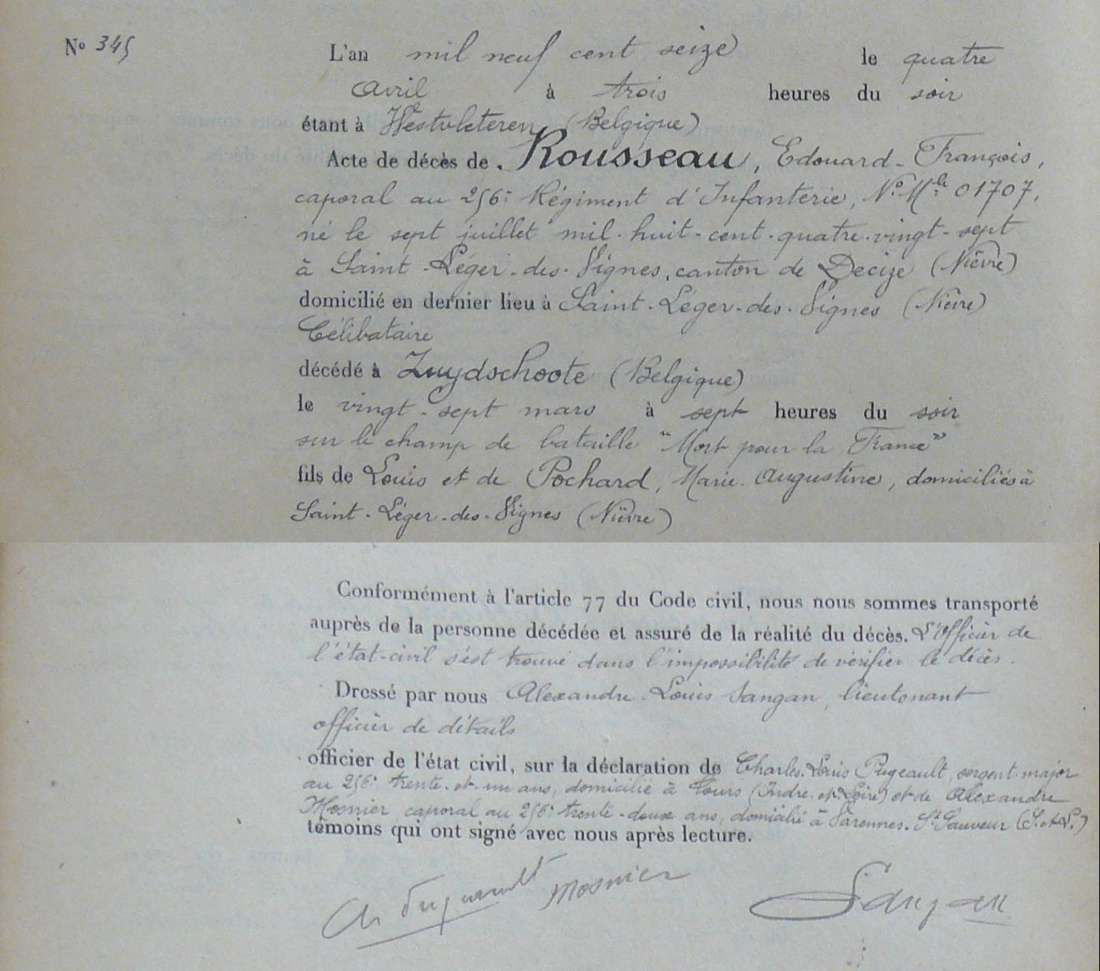 N° 345
L'an mil neuf cent seize le quatre
avril à trois heures du soir
étant à Westvleteren (Belgique)
Acte de décès de Rousseau, Edouard-François,
caporal au 256e Régiment d'Infanterie, N° Mle 01707,
né le sept juillet mil-huit-cent-quatre-vingt-sept
à Saint-Léger-des-Vignes, canton de Decize (Nièvre)
domicilié en dernier lieu à Saint-Léger-des-Vignes (Nièvre)
Célibataire
décédé à Zuydschoote (Belgique)
le vingt-sept mars à sept heures du soir
sur le champ de bataille "Mort pour la France"
fils de Louis et de Pochard, Marie-Augustine, domiciliés à
Saint-Léger-des-Vignes (Nièvre)
Conformément à l'article 77 du Code civil, nous nous sommes transporté
auprès de la personne décédée et assuré de la réalité du décès. L'Officier de
l'état-civil s'est trouvé dans l'impossibilité de vérifier le décès.
Dressé par nous Alexandre-Louis Sangan, lieutenant
officier de détails
officier de l'état civil, sur la déclaration de Charles-Louis Pugeault, sergent-major
au 256e trente-et-un ans, domicilié à Tours (Indre-et-Loire) et de Alexandre
Mosnier caporal au 256e trente-deux ans, domicilié à Varennes-St Sauveur (S. et L.)
témoins qui ont signé avec nous après lecture.
Ch Pugeault Mosnier Sangan